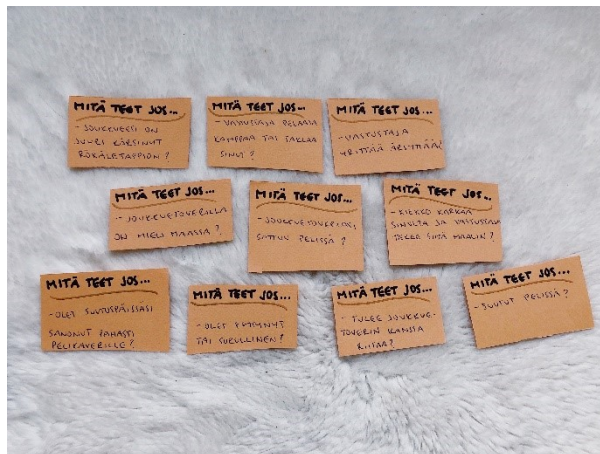 MITÄ TEET JOS...
- JOUKKUEESI ON
JUURI KÄRSINUT
RÖKÄLETAPPION?
MITÄ TEET JOS...
- VASTUSTAJA PELAAJA
KAMPPAA TAI TAKLAA
SINUT?
MITÄ TEET JOS...
- VASTUSTAJA
YRITTÄÄ ÄRSYTTÄÄ?
MITÄ TEET JOS...
- JOUKKUETOVERILLA
ON MIELI MAASSA?
MITÄ TEET JOS...
- JOUKKUETOVERIASI
SATTUU PELISSÄ?
MITÄ TEET JOS...
- KIEKKO KARKAA
SINULTA JA VASTUSTAJA
TEKEE SIITÄ MAALIN?
MITÄ TEET JOS...
- OLET SUUTUSPÄISSÄSI
SANONUT PAHASTI
PELIKAVERILLE?
MITÄ TEET JOS...
- OLET PETTYNYT
TAI SURULLINEN?
MITÄ TEET JOS...
- TULEE JOUKKUE-
TOVERIN KANSSA
RIITAA?
MITÄ TEET JOS...
- SUUTUT PELISSÄ?